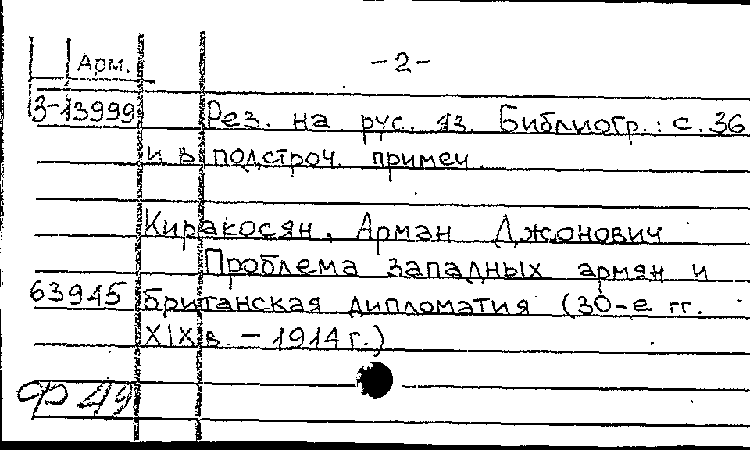 Арм.
-2-
3-13999
Рез. на рус. яз. Библиогр.: с. 36
и в подстроч. примеч.
Киракосян, Арман Джонович
Проблема западных армян и
63945
британская дипломатия (30-е гг.
XIX в - 1914 г.)
Ф 49